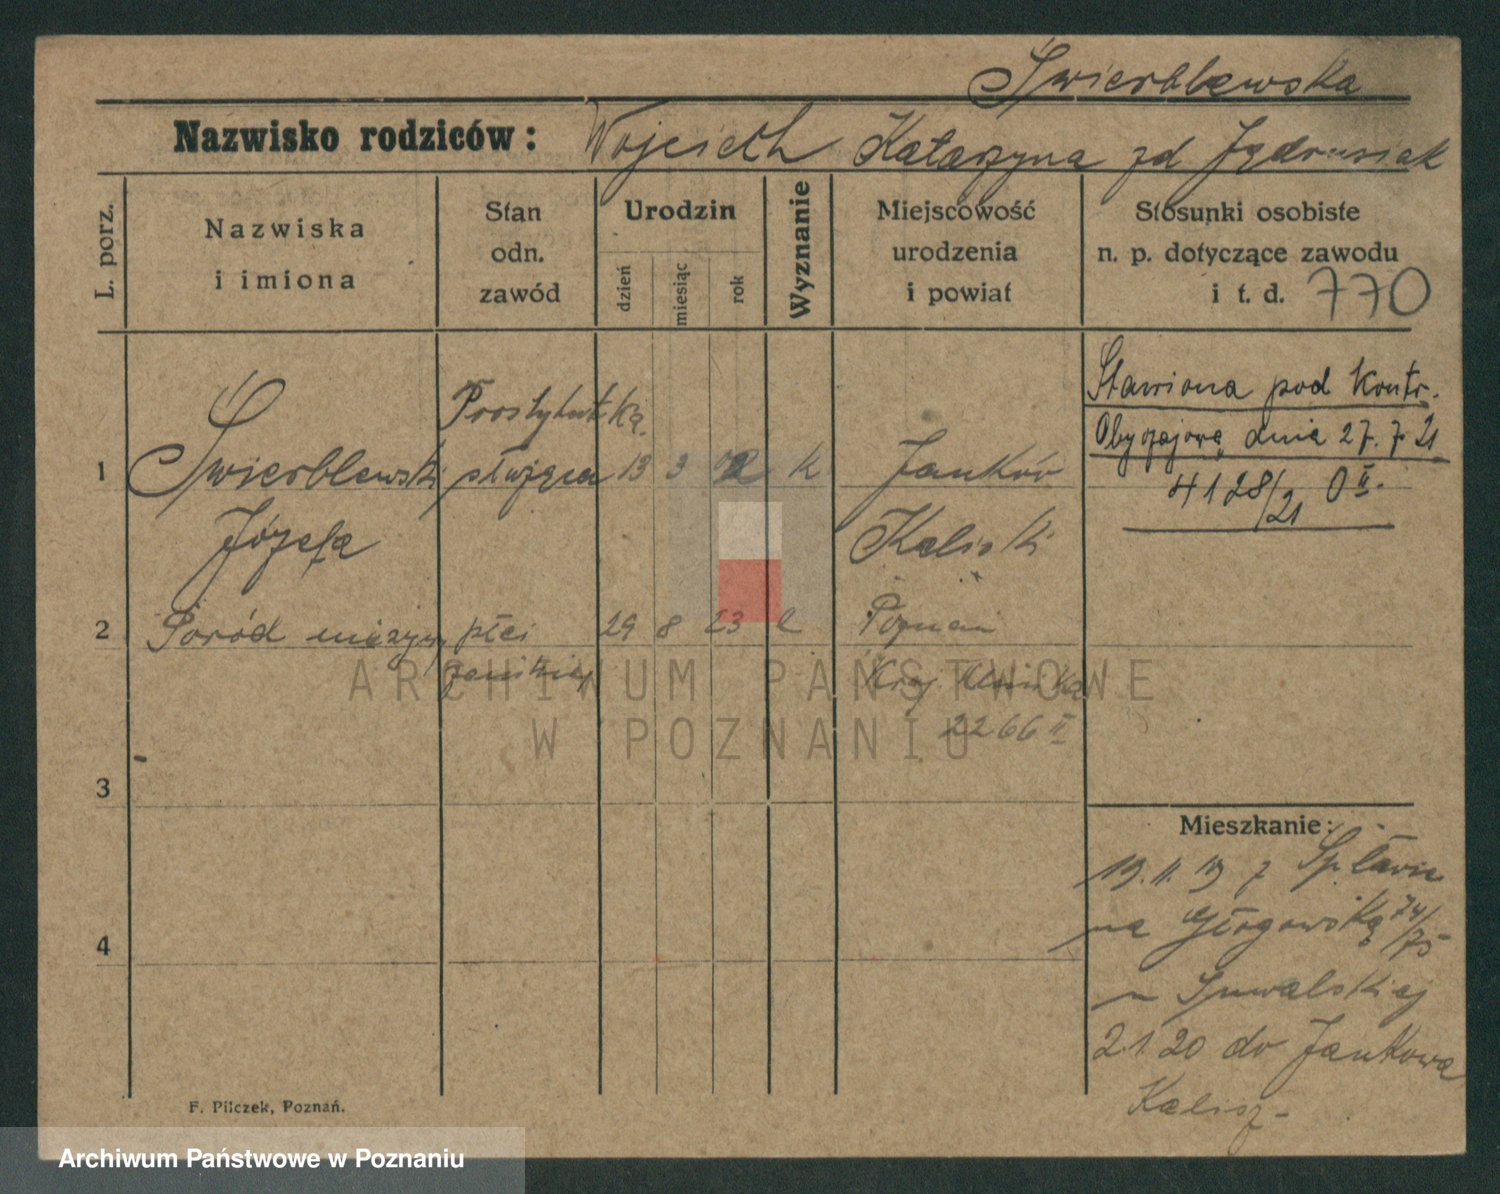 Swierblewska
Nazwisko rodziców: Wojciech Katarzyna zd Jędrusiak
L. porz.
Nazwiska
i imiona
Stan
odn.
zawód
Urodzin
dzień
miesiąc
rok
Wyznanie
Miejscowość
urodzenia
i powiat
Stosunki osobiste
n. p. dotyczące zawodu
i t. d. 770
Stawiona pod Kontr.
Obyczajową dnia 27. 7. 21
4128/21 O II.
Prostytutka
1 Swierblewski służąca 13 3 02 k Janków
Józefa Kaliski
2 Poród nieżywy płci 29 8 23 k Poznań
żeńskiej Kraj Klinika
2266 II
3
Mieszkanie:
19. 11. 19 z Spławie
na Głogowską 74/75
u Suwalskiej
2. 1. 20 do Jankowa
Kalisz-
4
F. Pilczek, Poznań.
ARCHIWUM PAŃSTWOWE
W POZNANIU
Archiwum Państwowe w Poznaniu